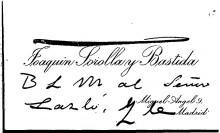 Joaquín Sorolla y Bastida
B L M al Señor
Laszló, y le
Miguel Angel 9.
Madrid